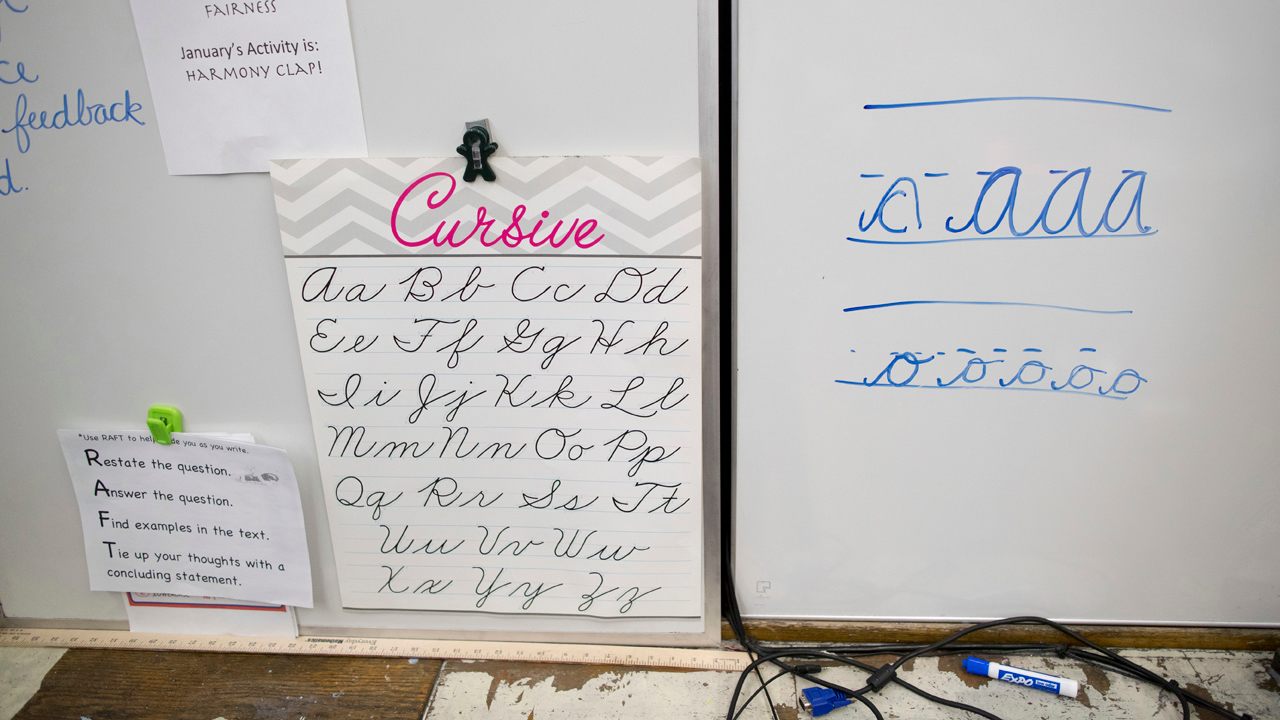 FAIRNESS
January's Activity is:
HARMONY CLAP!
feedback
d.
Cursive
Aa Bb Cc Dd
Ee Ff Gg Hh
Ii Jj Kk Ll
Mm Nn Oo Pp
Qq Rr Ss Tt
Uu Vv Ww
Xx Yy Zz
*Use RAFT to help de you as you write.
Restate the question.
Answer the question.
Find examples in the text.
Tie up your thoughts with a
concluding statement.
a a a a
o o o o o
Everyday
Mathematics
EXPO